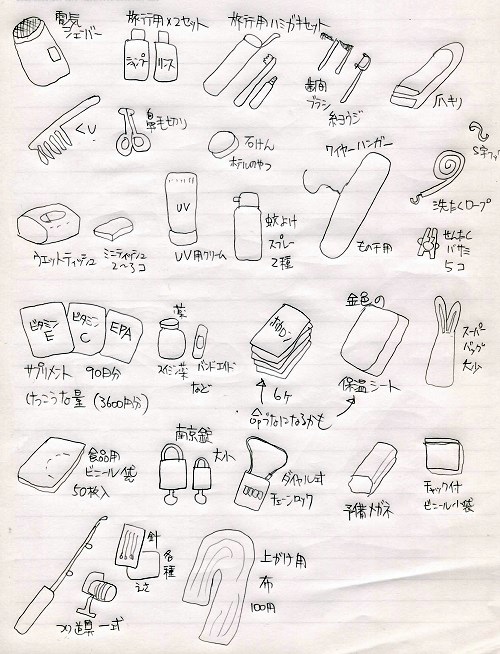 電気
シェーバー
旅行用×2セット
シャンプ
リンス
旅行用ハミガキセット
歯間
ブラシ
糸ヨウジ
爪キリ
くし
鼻毛切り
石けん
ホテルのやつ
ワイヤーハンガー
もの干用
S字フック
洗たくロープ
せんたく
バサミ
5コ
ウェットティッシュ
ミニティッシュ
2〜3コ
UV
UV用クリーム
蚊よけ
スプレー
2種
ビタミン
E
ビタミン
C
EPA
サプリメント 90日分
けっこうな量 (3600円分)
薬
バンドエイド
など
ホカロン
6ヶ
金色の
保温シート
命づなになるかも
スーパー
バッグ
大小
食品用
ビニール袋
50枚入
南京錠
大小
ダイヤル式
チェーンロック
予備メガネ
チャック付
ビニール小袋
つり道具一式
針
各種
えさ
上がけ用
布
100円